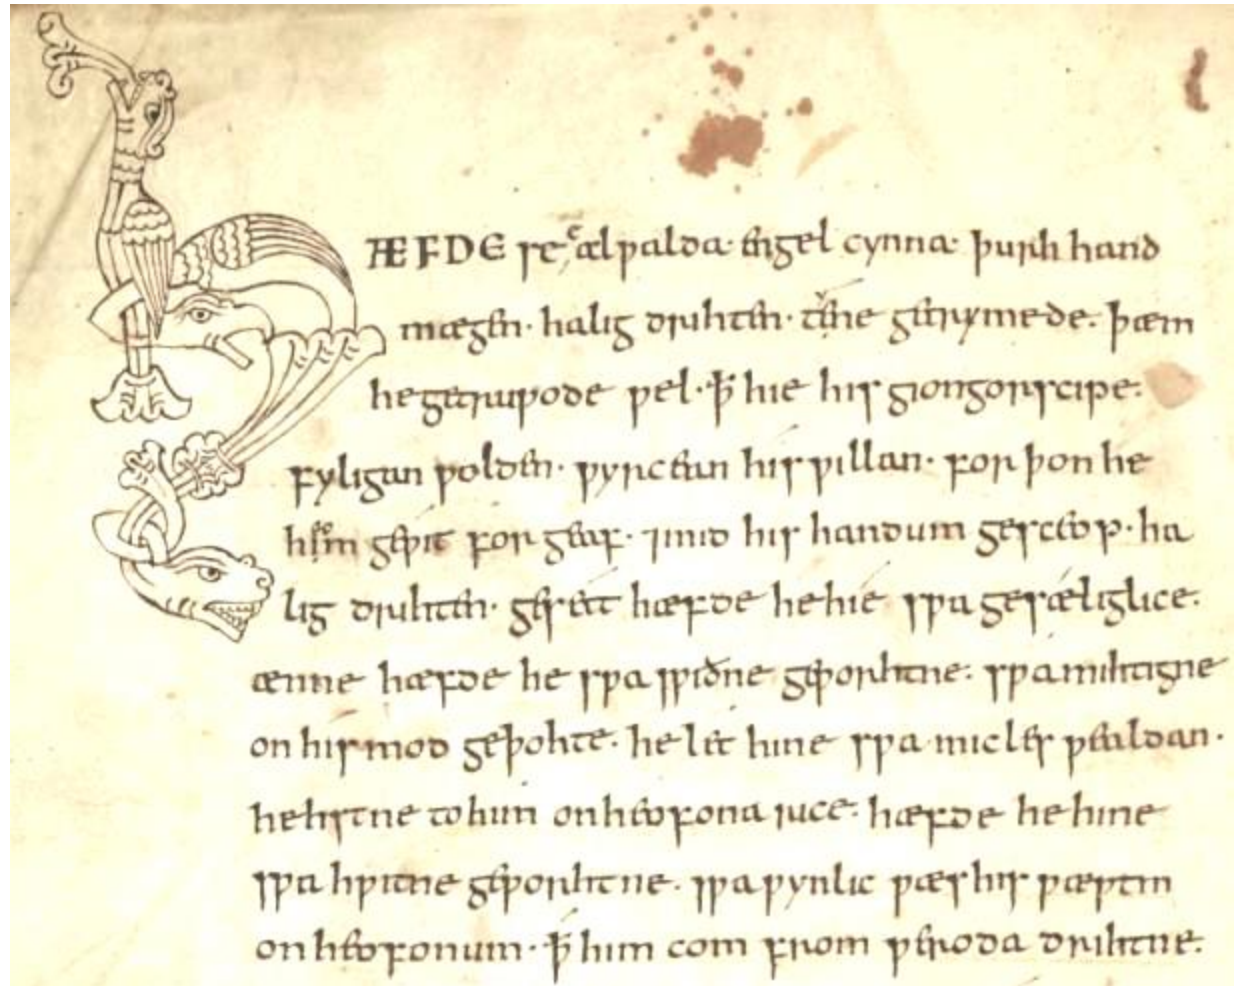 HÆFDE se ælƿalda· engel cynna· þurh hand
mægen· halig drihten· tene getrymede· þæm
he getruƿode ƿel· ꝥ hie his giongorscipe·
fyligan ƿolden· ƿyrcean his ƿillan· for þon he
heom geƿit for geaf· ⁊mid his handum gesceop· ha
lig drihten· gesett hæfde he hie sƿa gesæliglice·
ænne hæfde he sƿa sƿiðne geƿorhtne· sƿa mihtigne
on his mod geþohte· he let hine sƿa micles ƿealdan·
hehstne to him on heofona rice· hæfde he hine
sƿa hƿitne geƿorhtne· sƿa ƿynlic ƿæs his ƿæstm
on heofonum· ꝥ him com from ƿeroda drihtne·